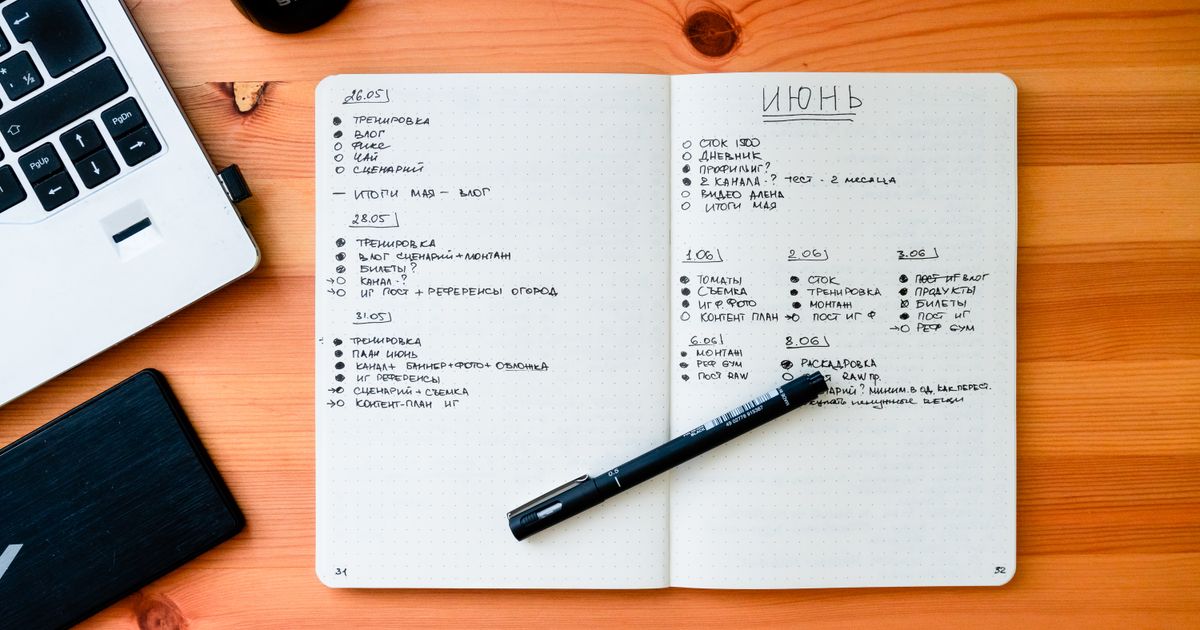 26.05
ТРЕНИРОВКА
ВЛОГ
ФИКС
ЧАЙ
СЦЕНАРИЙ
— ИТОГИ МАЯ — ВЛОГ
28.05
ТРЕНИРОВКА
ВЛОГ СЦЕНАРИЙ + МОНТАЖ
БИЛЕТЫ?
КАНАЛ-?
ИГ ПОСТ + РЕФЕРЕНСЫ ОГОРОД
31.05
ТРЕНИРОВКА
ПЛАН ИЮНЬ
КАНАЛ + БАННЕР + ФОТО + ОБЛОЖКА
ИГ РЕФЕРЕНСЫ
СЦЕНАРИЙ + СЪЕМКА
КОНТЕНТ-ПЛАН ИГ
31
ИЮНЬ
СТОК 1500
ДНЕВНИК
ПРОФИЛИГ?
2 КАНАЛА-? ТЕСТ - 2 МЕСЯЦА
ВИДЕО АЛЕНА
ИТОГИ МАЯ
1.06
ТОМАТЫ
СЪЕМКА
ИГ Ф. ФОТО
КОНТЕНТ ПЛАН
2.06
СТОК
ТРЕНИРОВКА
МОНТАЖ
ПОСТ ИГ Ф
3.06
ПОСТ ИГ ВЛОГ
ПРОДУКТЫ
БИЛЕТЫ
ПОСТ ИГ
РЕФ GYM
6.06
МОНТАЖ
РЕФ GYM
ПОСТ RAW
8.06
РАСКАДРОВКА
RAW ПР.
МИНИМ. В ОД. КАК ПЕРЕСТ.
НЕНУЖНЫЕ ВЕЩИ
32
0.5
PgDn
PgUp
½
*